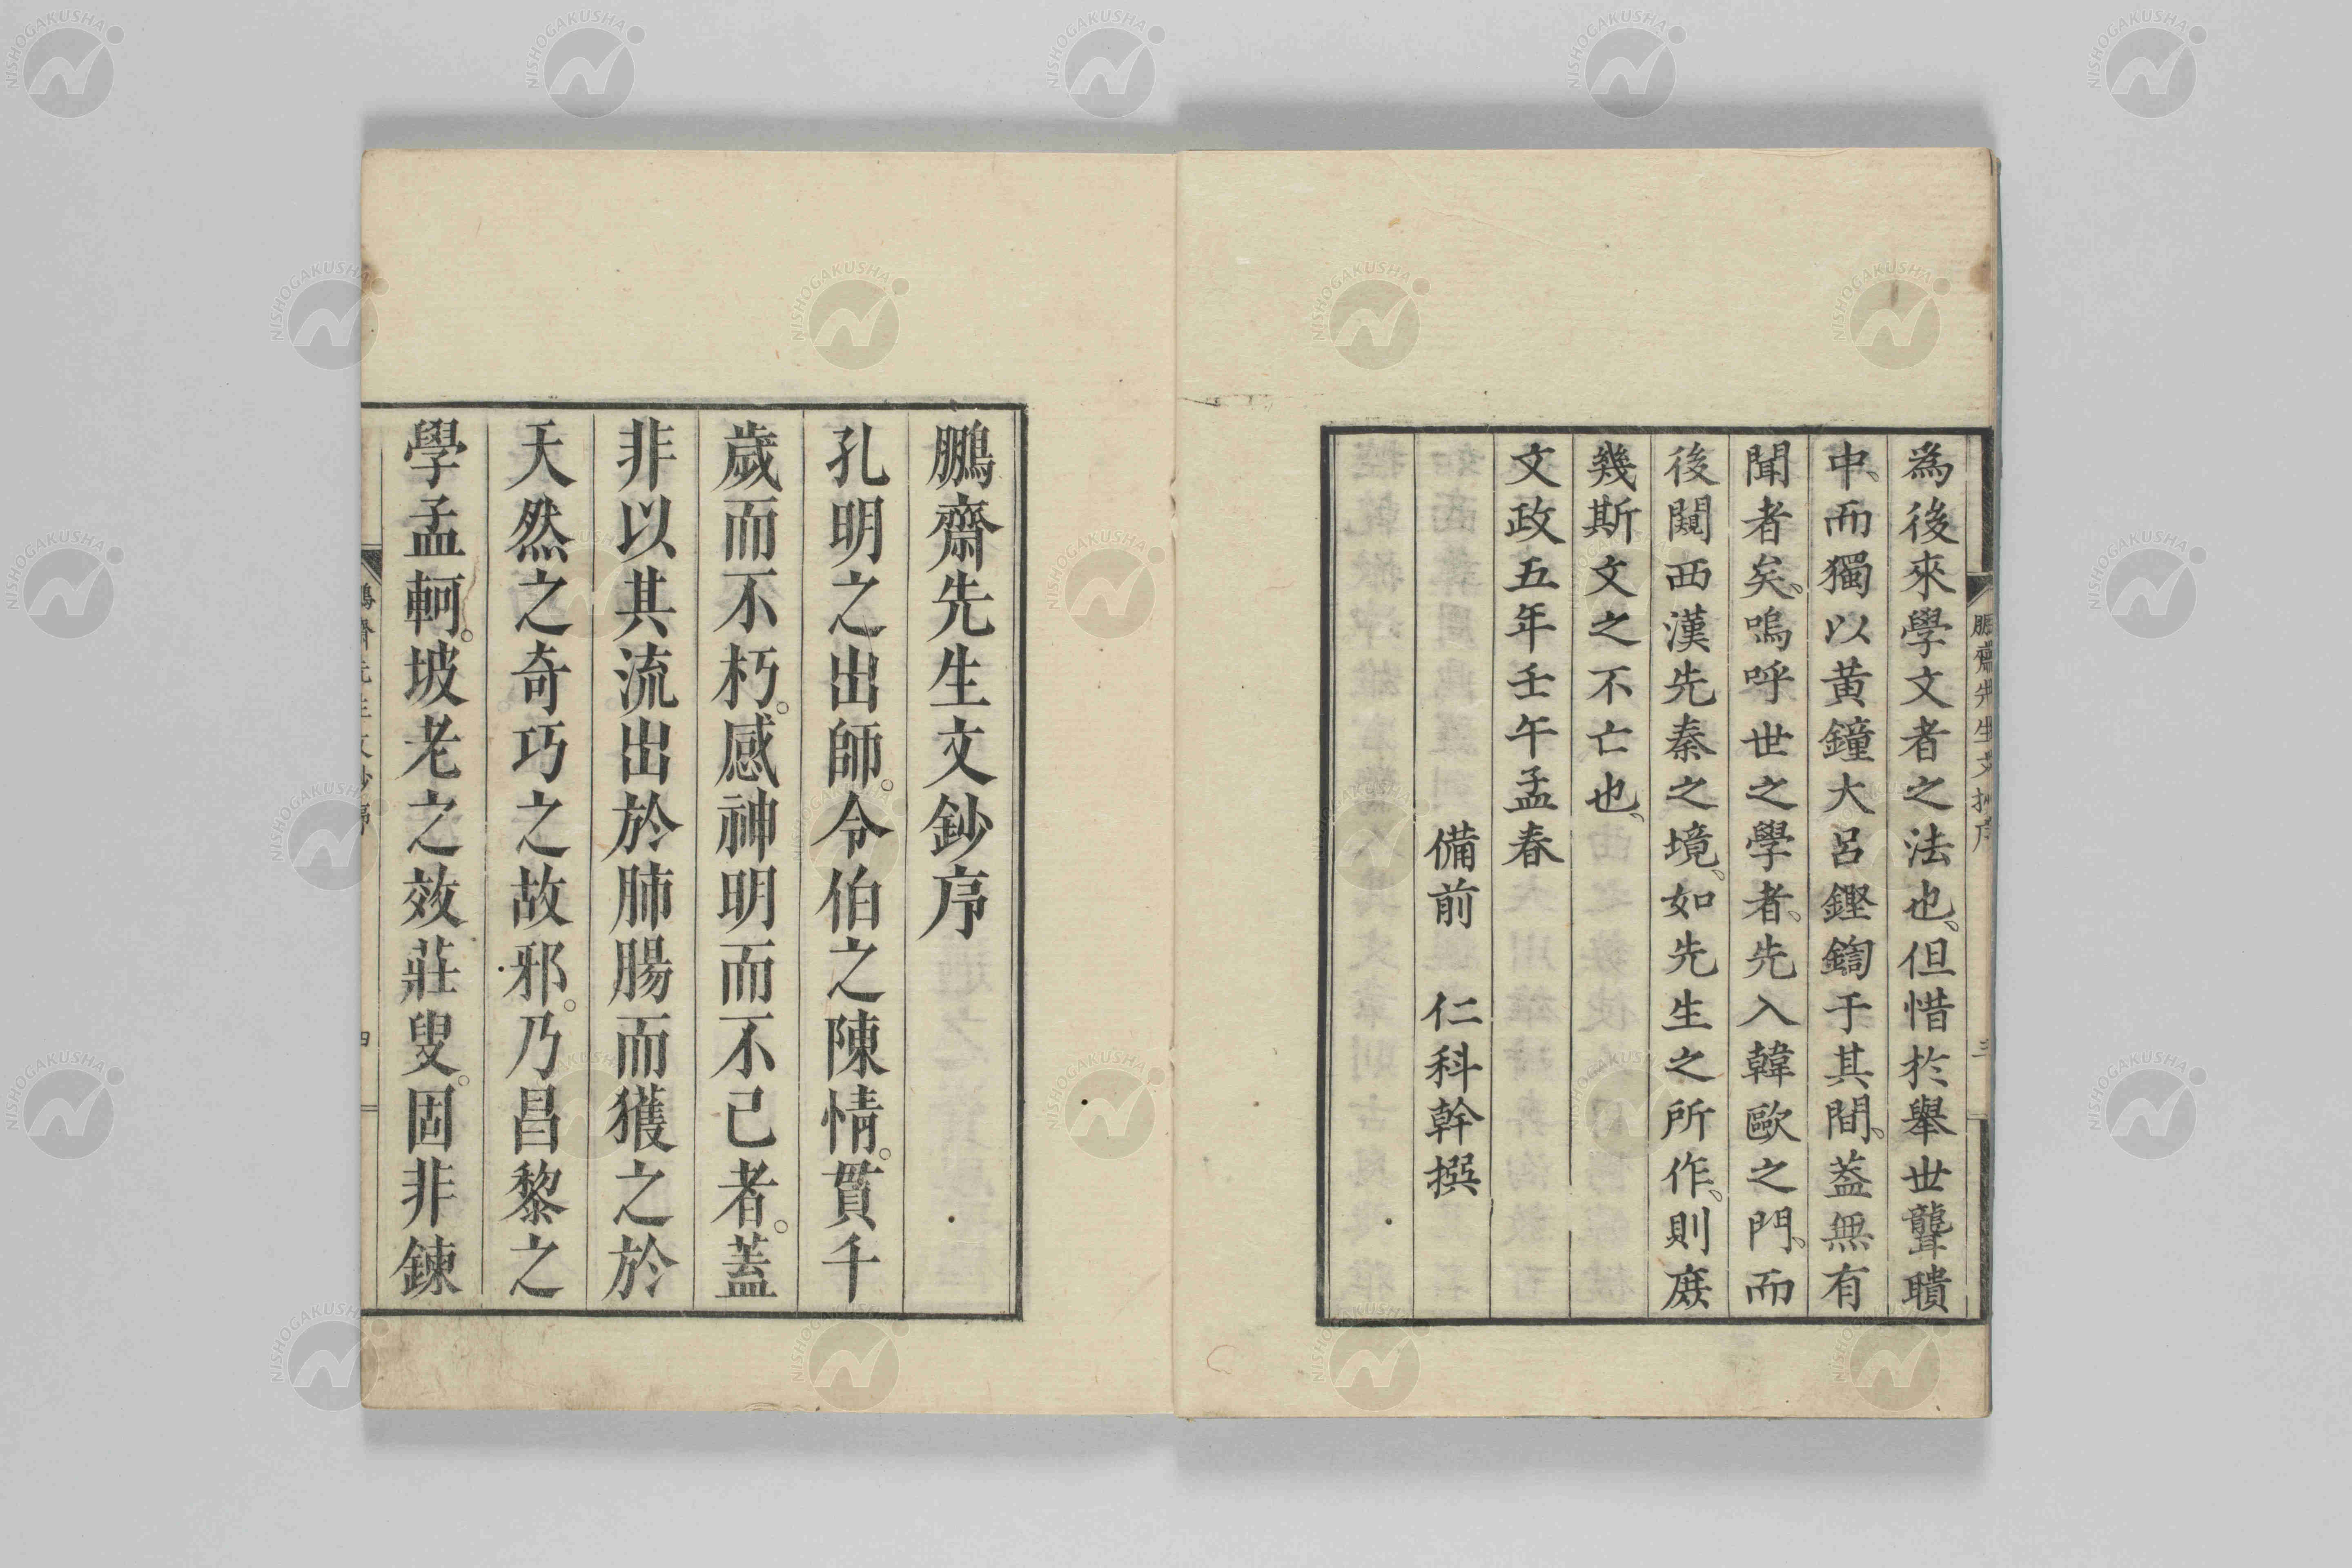 為後來學文者之法也、但惜於舉世聾聵
中、而獨以黃鐘大呂鏗鍧于其間、蓋無有
聞者矣、嗚呼世之學者、先入韓歐之門、而
後闚西漢先秦之境、如先生之所作、則庶
幾斯文之不亡也、
文政五年壬午孟春
備前 仁科幹撰
鵬齋先生文抄序
三
鵬齋先生文鈔序
孔明之出師。令伯之陳情。貫千
歲而不朽。感神明而不已者。蓋
非以其流出於肺腸而獲之於
天然之奇巧之故邪。乃昌黎之
學孟軻。坡老之效莊叟。固非鍊
鵬齋先生文鈔序
四
NISHOGAKUSHA